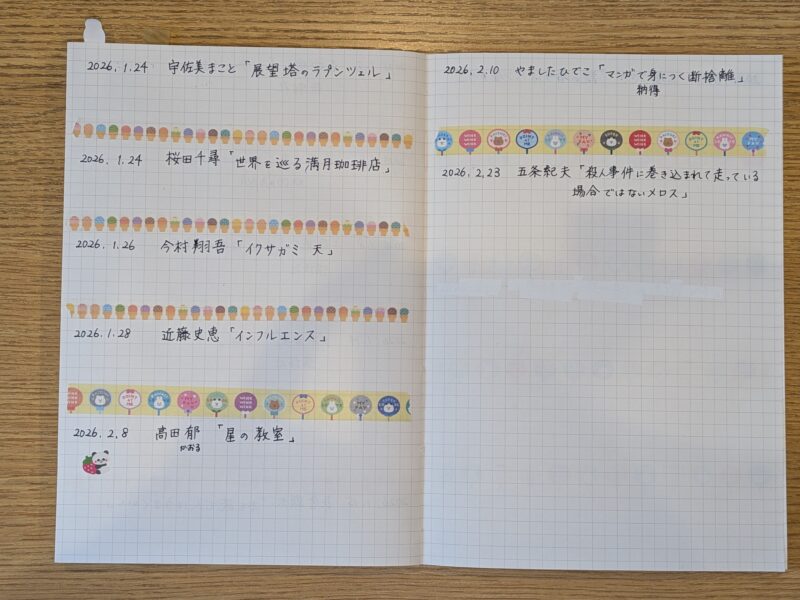 2026.1.24 宇佐美まこと「展望塔のラプンツェル」
2026.1.24 桜田千尋「世界を巡る満月珈琲店」
2026.1.26 今村翔吾「イクサガミ 天」
2026.1.28 近藤史恵「インフルエンス」
2026.2.8 高田郁「星の教室」
かおる
2026.2.10 やましたひでこ「マンガで身につく断捨離」
納得
2026.2.23 五条紀夫「殺人事件に巻き込まれて走っている
場合ではないメロス」